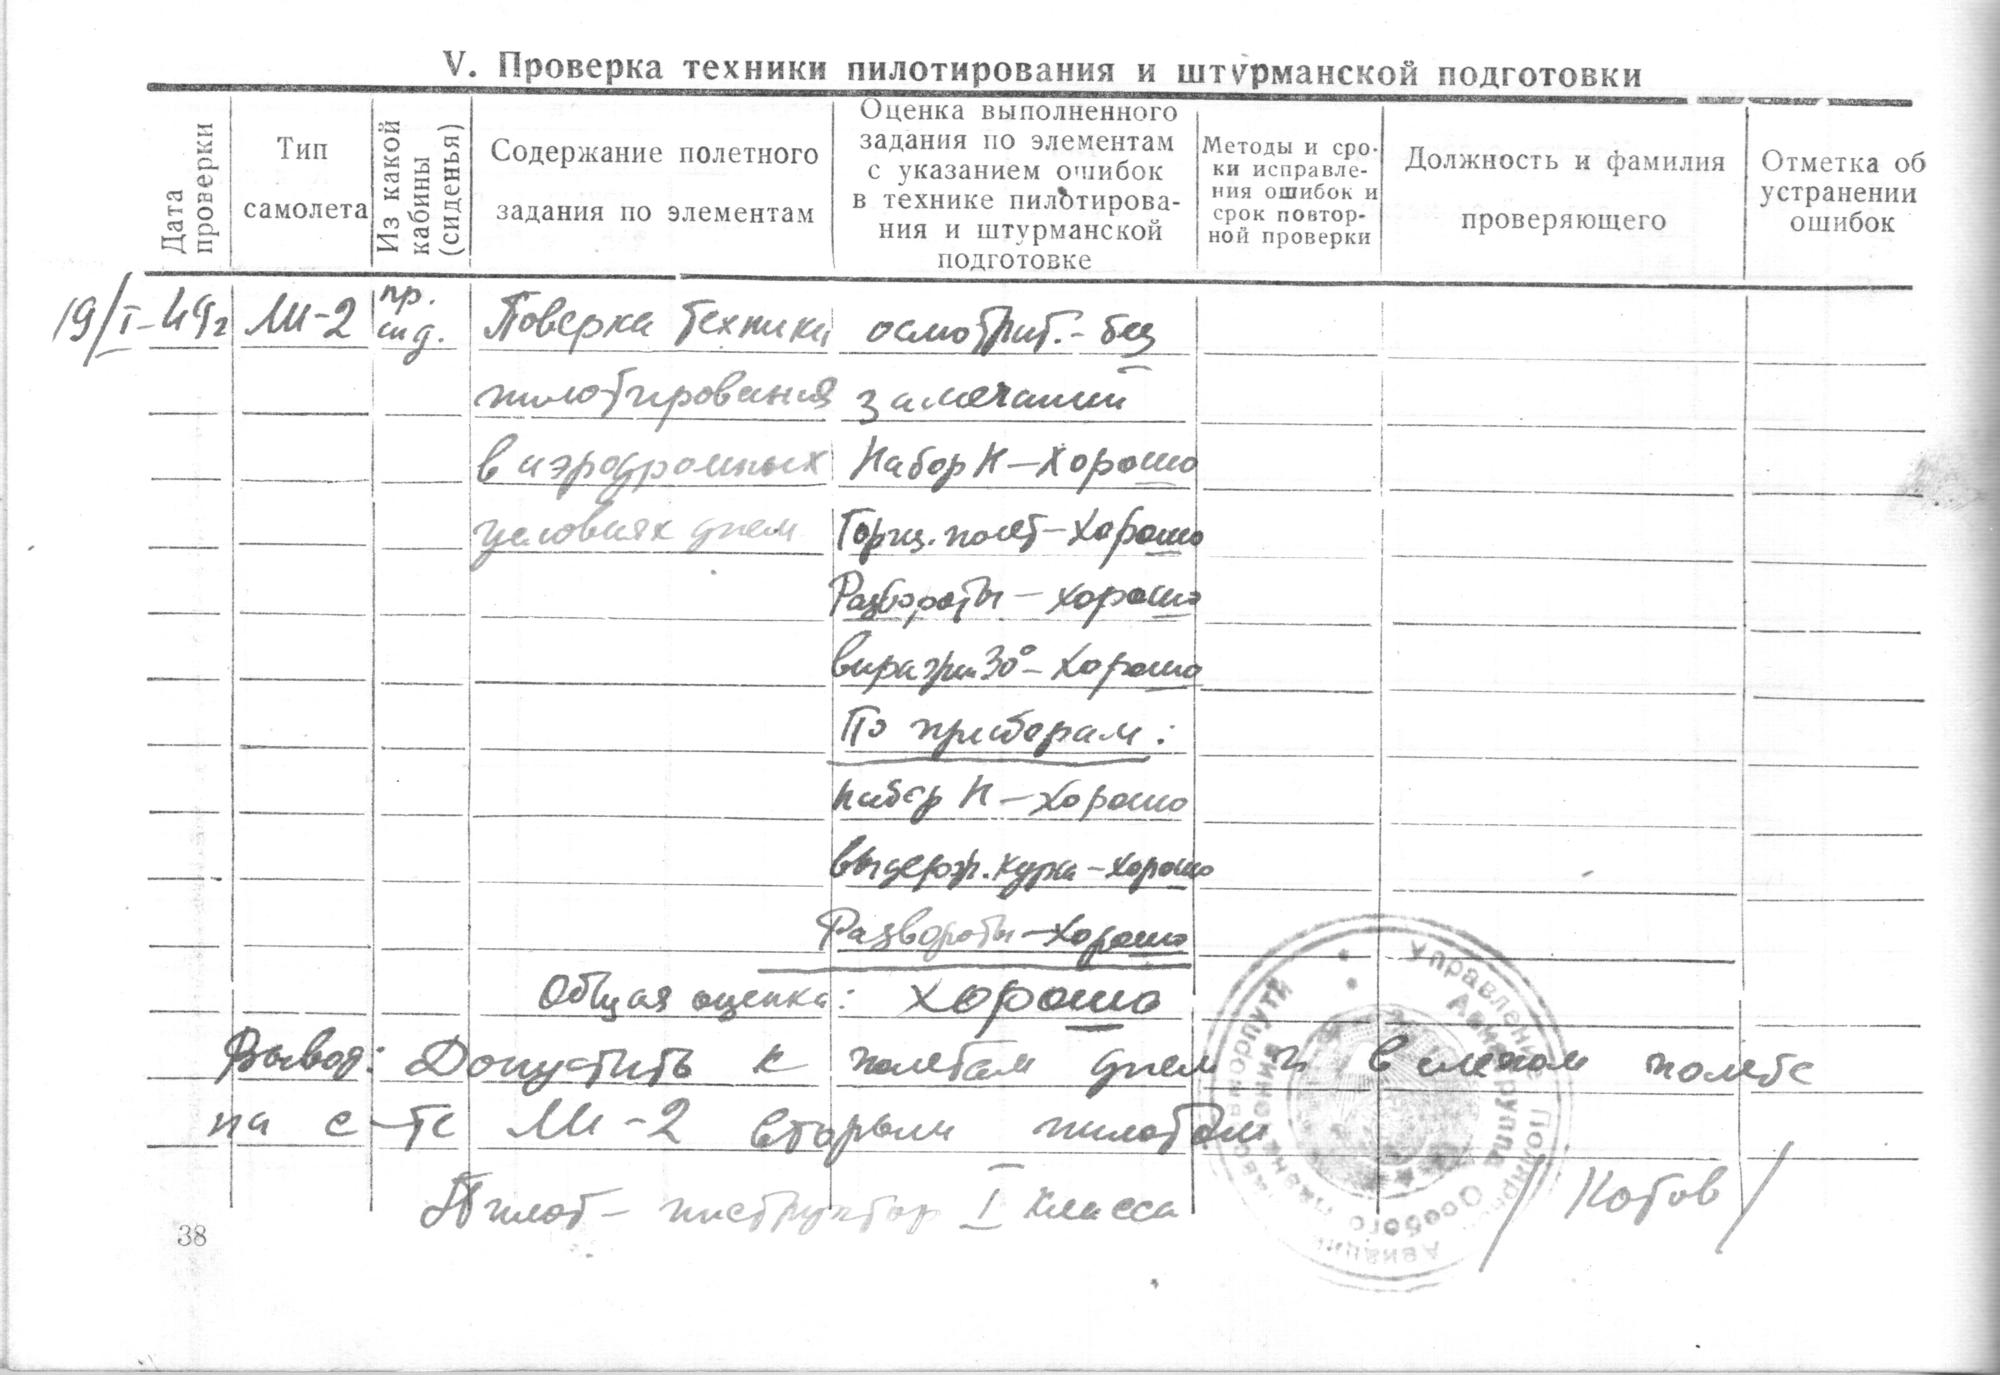 V. Проверка техники пилотирования и штурманской подготовки
Дата
проверки
Тип
самолета
Из какой
кабины
(сиденья)
Содержание полетного
задания по элементам
Оценка выполненного
задания по элементам
с указанием ошибок
в технике пилотирова-
ния и штурманской
подготовке
Методы и сро-
ки исправле-
ния ошибок и
срок повтор-
ной проверки
Должность и фамилия
проверяющего
Отметка об
устранении
ошибок
19/I-49г
Ли-2
пр.
сид.
Поверка техники
пилотирования
в аэродромных
условиях днем
осмотрит.- без
замечаний
Набор Н - Хорошо
Гориз. полет - Хорошо
Развороты - хорошо
виражи 30° - Хорошо
По приборам:
набор Н - хорошо
выдерж. курса - хорошо
Развороты - хорошо
Общая оценка: хорошо
Вывод: Допустить к полетам днем и в слепом полете
на с-те Ли-2 вторым пилотом
Пилот - инструктор I класса
/Котов/
Управление Полярной Авиации Главсевморпути
Авиагруппа Особого
38